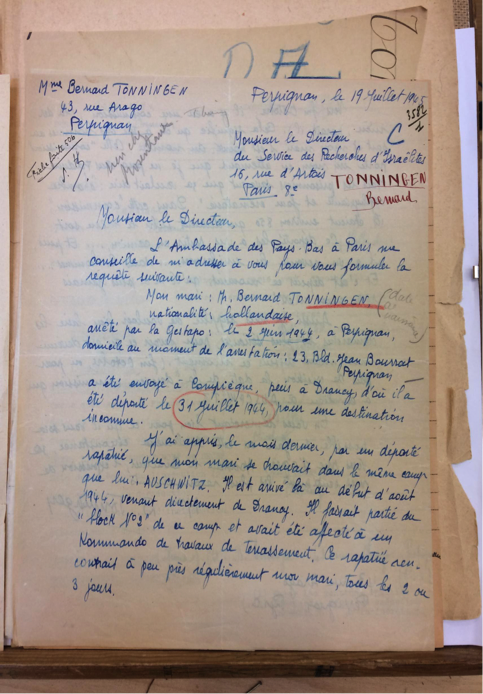 Mme Bernard TONNINGEN
43, rue Arago
Perpignan
Perpignan, le 19 Juillet 1945
C
3582
Monsieur le Directeur
du Service des Recherches d'Israélites
16, rue d'Artois
Paris 8e
TONNINGEN
Bernard
Monsieur le Directeur,
L'Ambassade des Pays-Bas à Paris me
conseille de m'adresser à vous pour vous formuler la
requête suivante:
Mon mari: M. Bernard TONNINGEN
nationalité: hollandaise
arrêté par la Gestapo: le 2 Juin 1944, à Perpignan,
domicilié au moment de l'arrestation: 23, Bld. Jean Bourrat
Perpignan
a été envoyé à Compiègne, puis à Drancy, d'où il a
été déporté le 31 Juillet 1944, pour une destination
inconnue.
J'ai appris, le mois dernier, par un déporté
rapatrié, que mon mari se trouvait dans le même camp
que lui: AUSCHWITZ. Il est arrivé là au début d'août
1944, venant directement de Drancy. Il faisait partie du
"block No 9" de ce camp et avait été affecté à un
Kommando de travaux de terrassement. Ce rapatrié ren-
contrait à peu près régulièrement mon mari, tous les 2 ou
3 jours.